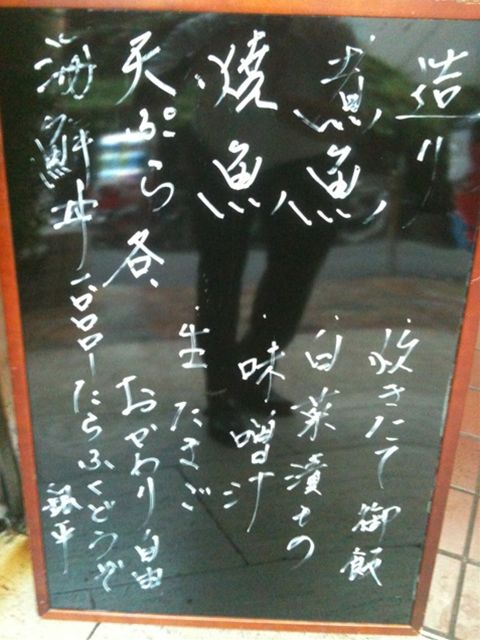 造り
煮魚
焼魚
天ぷら
海鮮丼
各、一〇〇〇ー
炊きたて御飯
・白菜漬もの
・味噌汁
・生たまご
おかわり自由
たらふくどうぞ
銀平